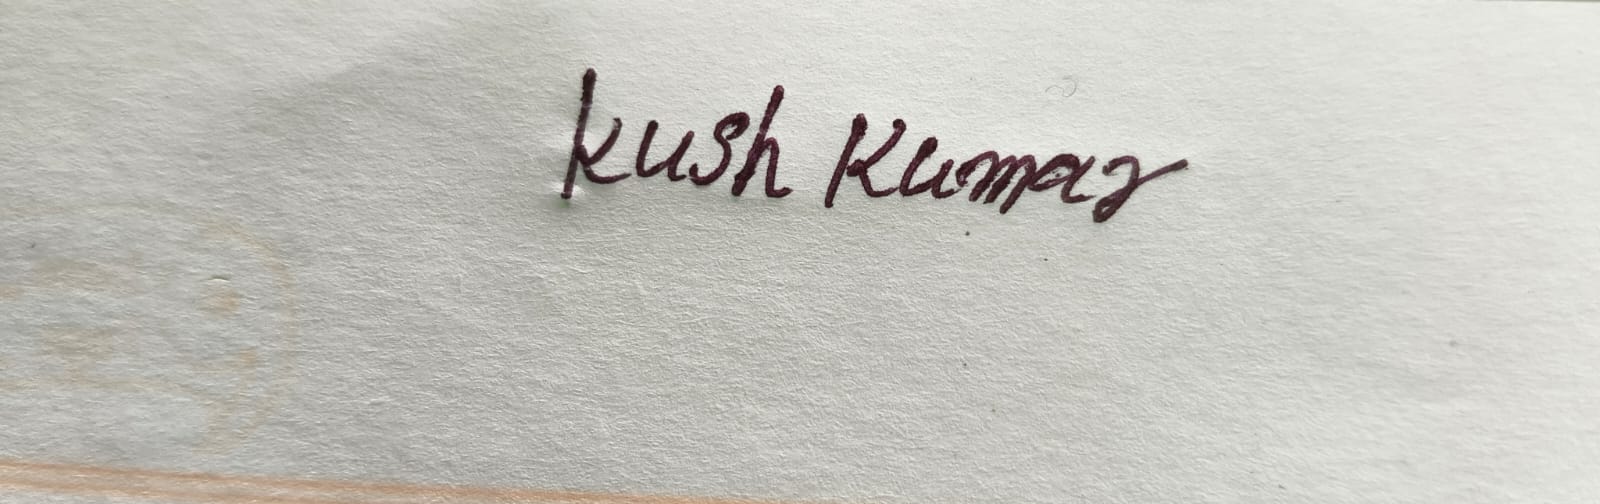 Kush Kumar